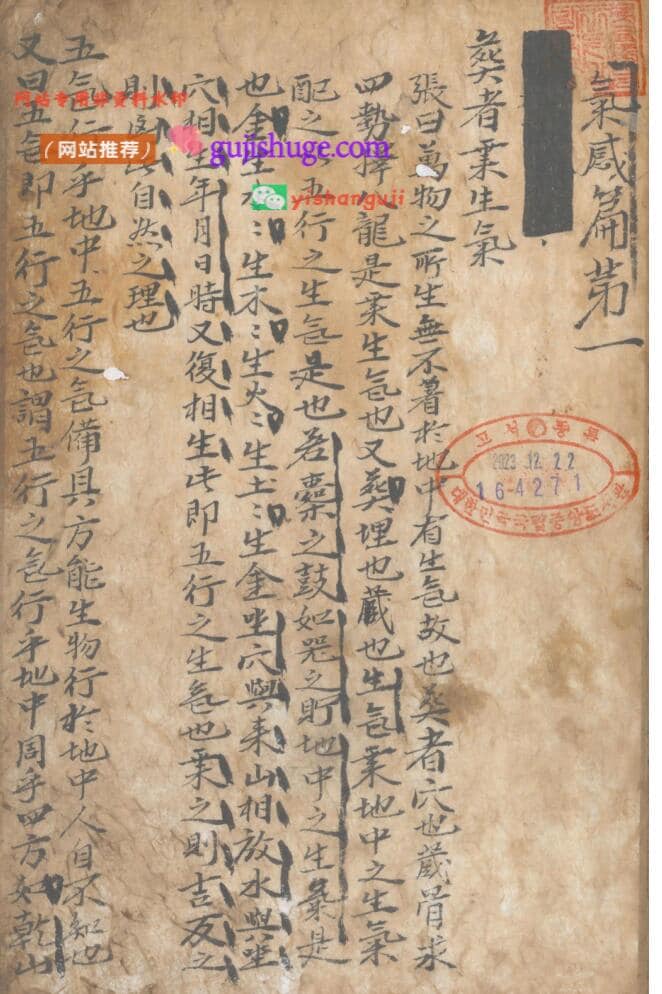 氣感篇苐一
葬者乘生氣
張曰萬物之所生無不著扵地中有生氣故也葬者穴也藏骨求
四勢擇八龍是乘生氣也又葬埋也藏也生氣乘地中之生氣
配之五行之生氣是也若橐之鼓如器之貯地中之生氣是
也金生水〻生木〻生火〻生土〻生金坐穴與来山相放水與坐
穴相生年月日時又復相生此即五行之生氣也乘之則吉反之
則自然之理也
五氣行乎地中五行之氣備具方能生物行扵地中人自不知也
又曰五氣即五行之氣也謂五行之氣行乎地中周乎四方如乾山
网站专用非资料水印
（网站推荐）
gujishuge.com
yishanguji
2023.12.22
16-4271